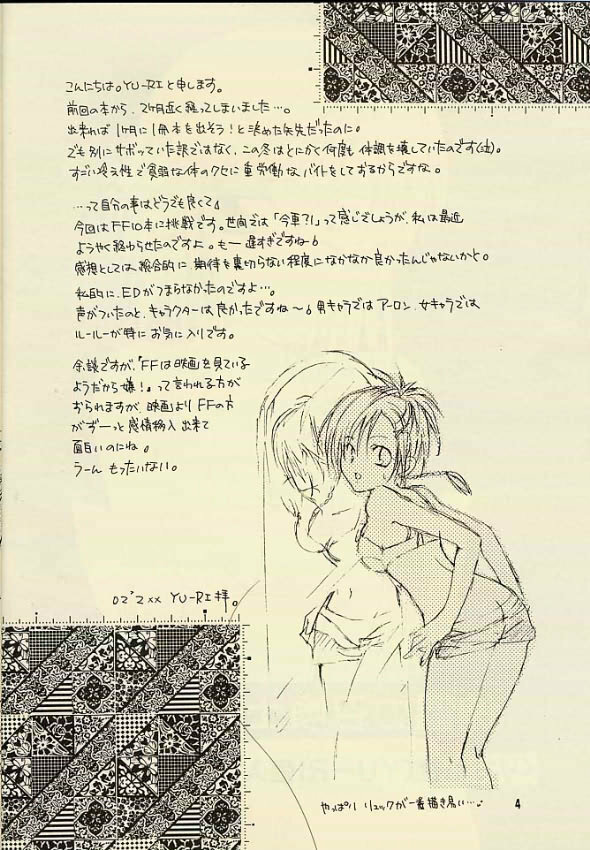 こんにちは。YU-RIと申します。
前回の本から、2ヶ月近く経ってしまいました…。
出来れば1ヶ月に1冊本を出そう!と決めた矢先だったのに。
でも別にサボッていた訳ではなく、この冬はとにかく何度も体調を壊していたのです(泣)。
すごい冷え性で貧弱な体のクセに重労働なバイトをしておるからですな。
…って自分の事はどうでも良くて
今回はFF10本に挑戦です。世間では「今更?!」って感じでしょうが、私は最近
ようやく終わらせたのですよ。もー遅すぎですね
感想としては、総合的に、期待を裏切らない程度になかなか良かったんじゃないかと。
私的に、EDがつまらなかったのですよ…。
声がついたのと、キャラクターは良かったですね〜。男キャラではアーロン、女キャラでは
ルールーが特にお気に入りです。
余談ですが、「FFは映画を見ている
ようだから嫌!」って言われる方が
おられますが、映画よりFFの方
がずーっと感情移入出来て
面白いのにね。
うーん もったいない。
02'2xx YU-RI拝。
やっぱり リュックが一番描き易い…。
4